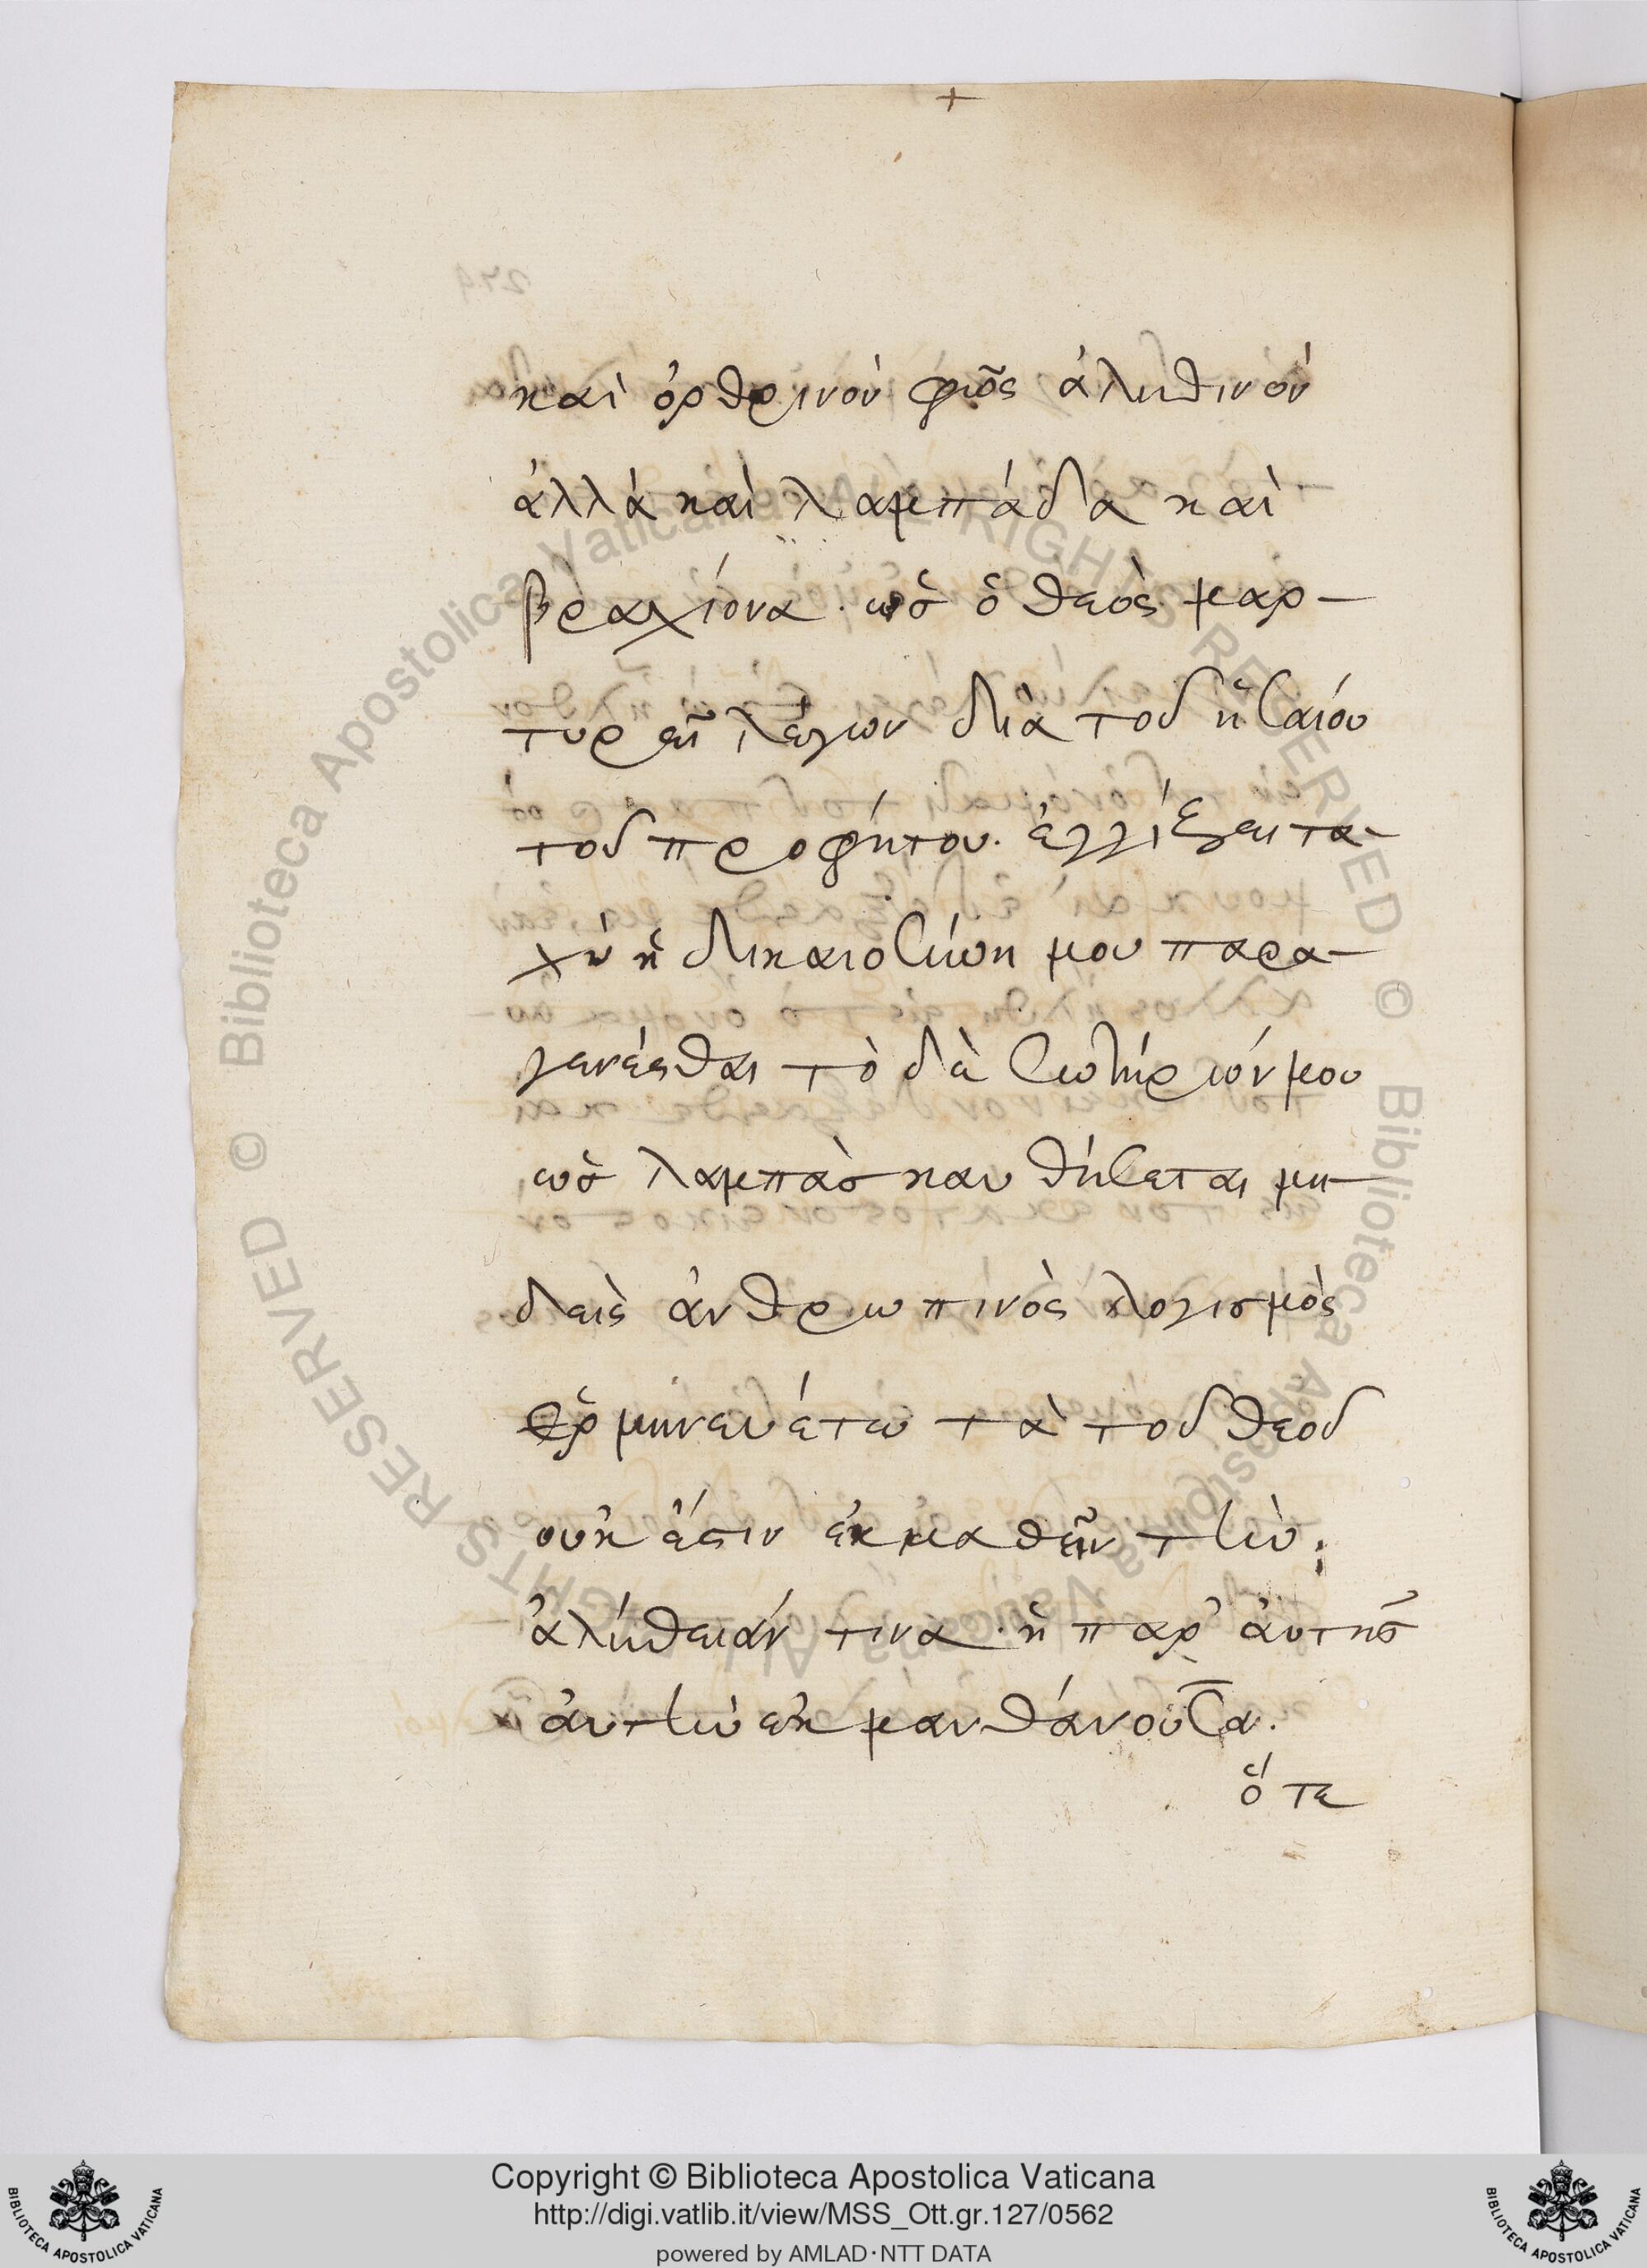 +
καὶ ὀρθρινὸν φῶς ἀληθινὸν
ἀλλὰ καὶ λαμπάδα καὶ
βραχίονα. ὡς ὁ θεὸς μαρ-
τυρεῖ λέγων διὰ τοῦ ἡσαίου
τοῦ προφήτου. ἐγγίζει τα-
χὺ ἡ δικαιοσύνη μου παρα-
γενέσθαι τὸ δὲ σωτήριόν μου
ὡς λαμπὰς καυθήσεται μη-
δεὶς ἀνθρωπινὸς λογισμὸς
ἑρμηνευέτω τὰ τοῦ θεοῦ
οὐκ ἔστιν ἐκμαθεῖν τὴν
ἀλήθειάν τινα. ἢ παρ' ἀυτῆς
ἀυτὴν ἐκμανθάνουσα.
ὅτε
Copyright © Biblioteca Apostolica Vaticana
http://digi.vatlib.it/view/MSS_Ott.gr.127/0562
powered by AMLAD·NTT DATA
BIBLIOTECA APOSTOLICA VATICANA
BIBLIOTECA APOSTOLICA VATICANA
© Biblioteca Apostolica Vaticana ALL RIGHTS RESERVED © Biblioteca Apostolica Vaticana ALL RIGHTS RESERVED